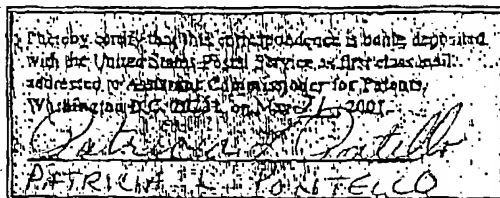 I hereby certify that this correspondence is being deposited
with the United States Postal Service as first class mail
addressed to Assistant Commissioner for Patents,
Washington D.C. 20231, on 2001.
Patricia L Pontello
PATRICIA L PONTELLO